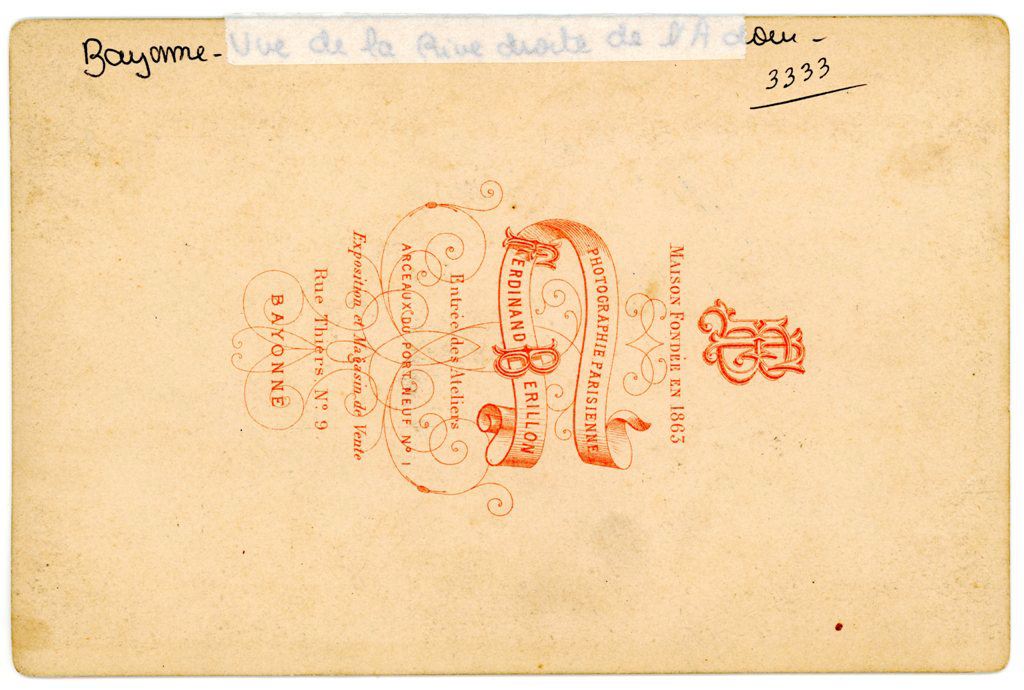 Bayonne - Vue de la Rive droite de l'Adour -
3333
FB
MAISON FONDÉE EN 1863
PHOTOGRAPHIE PARISIENNE
FERDINAND BERILLON
Entrée des Ateliers
ARCEAUX DU PORT NEUF Nº 1
Exposition et Magasin de Vente
Rue Thiers Nº 9
BAYONNE